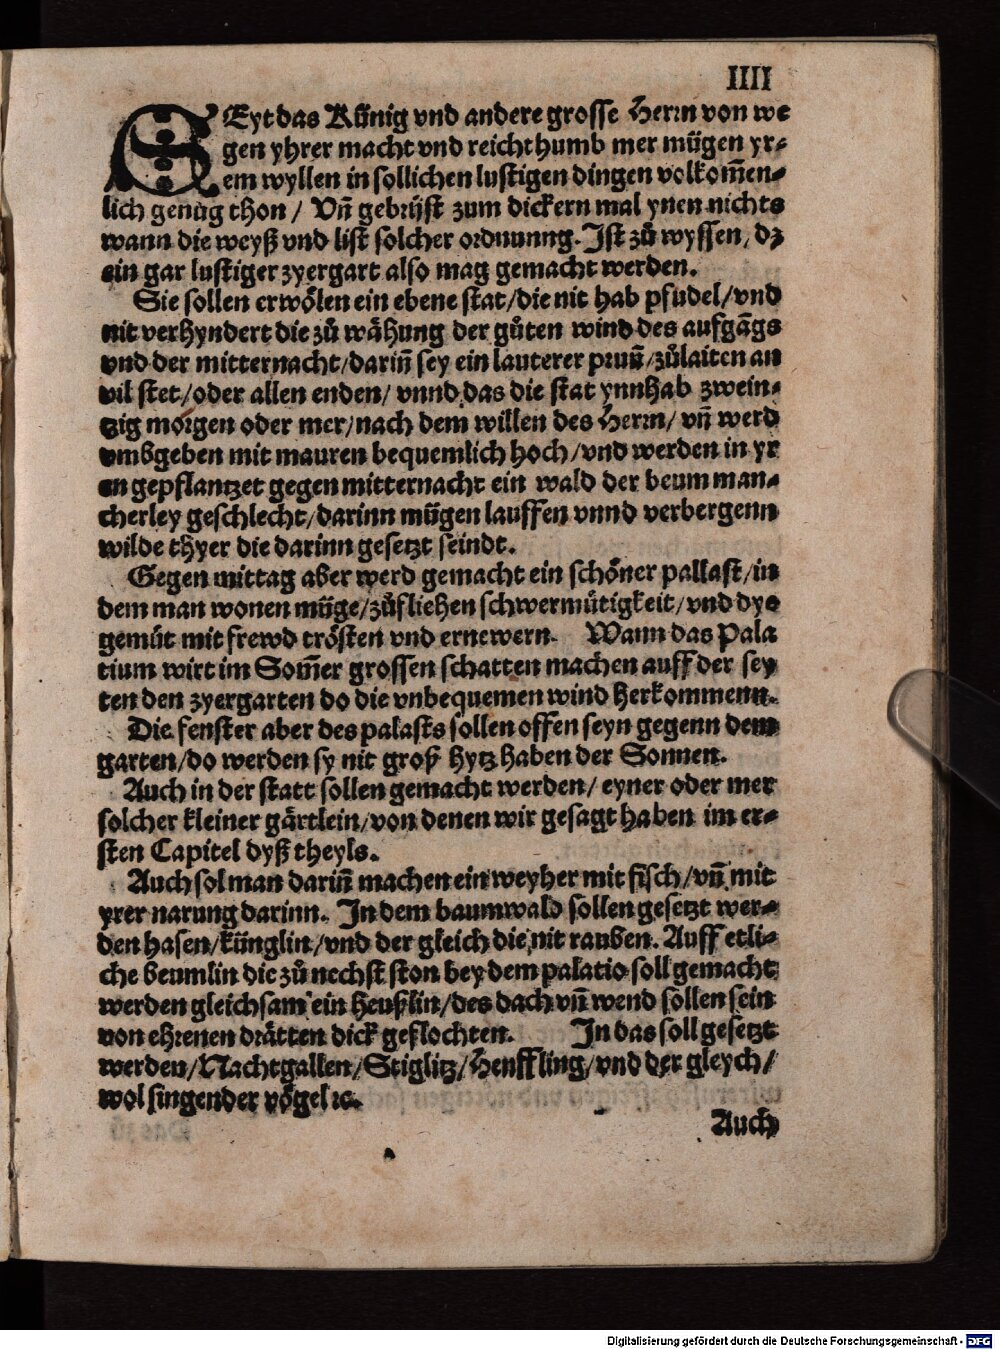 IIII
SEyt das Künig vnd andere grosse Herrn von we
gen yhrer macht vnd reichthumb mer mügen yr⸗
em wyllen in sollichen lustigen dingen volkom̃en⸗
lich genůg thon / Vñ gebrijst zum dickern mal ynen nichts
wann die weyß vnd list solcher ordnunng. Ist zů wyssen, dz
ein gar lustiger zyergart also mag gemacht werden.
Sie sollen erwölen ein ebene stat/die nit hab pfudel/vnd
nit verhyndert die zů wähung der gůten wind des aufgãgs
vnd der mitternacht/dariñ sey ein lauterer pruñ/zůlaiten an
vil stet/oder allen enden/ vnnd das die stat ynnhab zwein⸗
tzig morgen oder mer/nach dem willen des Herrn/ vñ werd
vmbgeben mit mauren bequemlich hoch/vnd werden in yr
an gepflantzet gegen mitternacht ein wald der beum man⸗
cherley geschlecht/darinn mügen lauffen vnnd verbergenn
wilde thyer die darinn gesetzt seindt.
Gegen mittag aber werd gemacht ein schöner pallast/in
dem man wonen müge/zůfliehen schwermütigkeit/vnd dye
gemüt mit frewd trösten vnd ernewern. Wann das Pala
tium wirt im Som̃er grossen schatten machen auff der sey
ten den zyergarten do die vnbequemen wind herkommenn.
Die fenster aber des palasts sollen offen seyn gegenn dem
garten/do werden sy nit groß hytz haben der Sonnen.
Auch in der statt sollen gemacht werden/ eyner oder mer
solcher kleiner gärtlein/von denen wir gesagt haben im er⸗
sten Capitel dyß theyls.
Auch sol man dariñ machen ein weyher mit fisch/vñ mit
yrer narung darinn. In dem baumwald sollen gesetzt wer⸗
den hasen/künglin/vnd der gleich die nit rauben. Auff etli⸗
che beumlin die zů nechst ston bey dem palatio soll gemacht
werden gleichsam ein heußlin/des dach vñ wend sollen sein
von ehrenen drätten dick geflochten. In das soll gesetzt
werden/Nachtgallen/Stiglitz/Henffling/vnd der gleych/
wol singender vögel ꝛc.
Auch
Digitalisierung gefördert durch die Deutsche Forschungsgemeinschaft - DFG